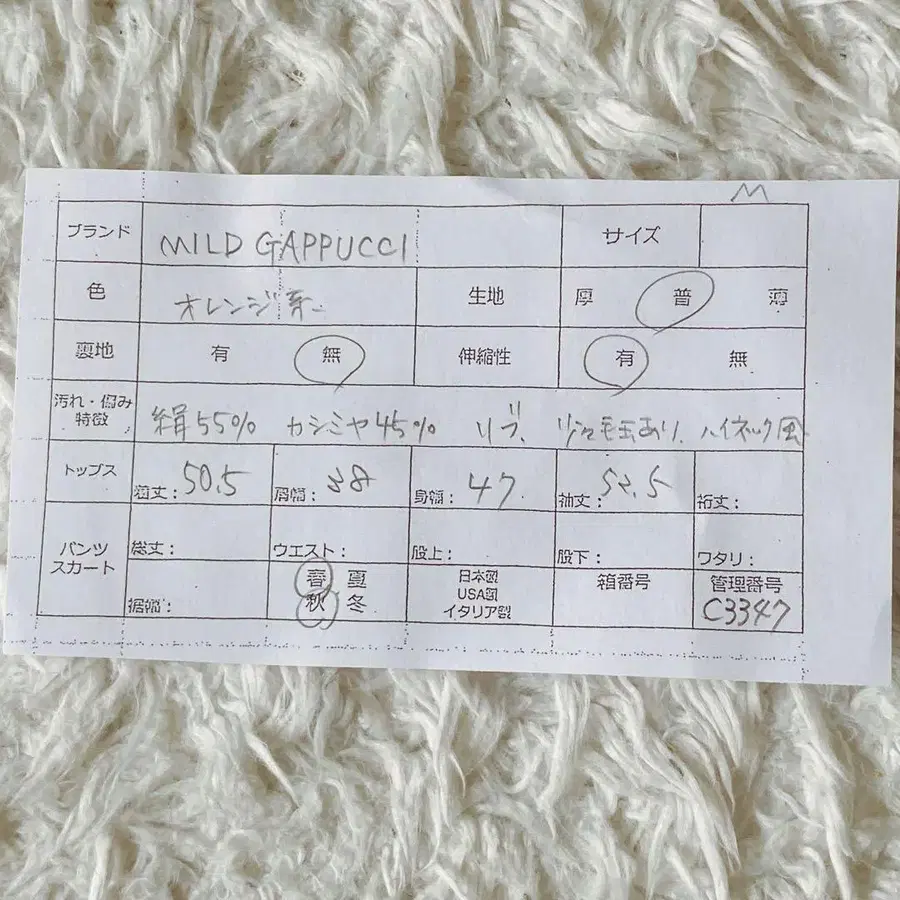 M
ブランド MILD GAPPUCCI サイズ
色 オレンジ系 生地 厚 普 薄
裏地 有 無 伸縮性 有 無
汚れ・傷み 特徴 絹55% カシミヤ45% リブ. 毛玉あり. ハイネック風
トップス 着丈: 50.5 肩幅: 38 身幅: 47. 袖丈: 53.5 裄丈:
パンツ スカート 総丈: ウエスト: 股上: 股下: ワタリ:
裾幅: 春 夏 秋 冬 日本製 USA製 イタリア製 箱番号 管理番号 C3347